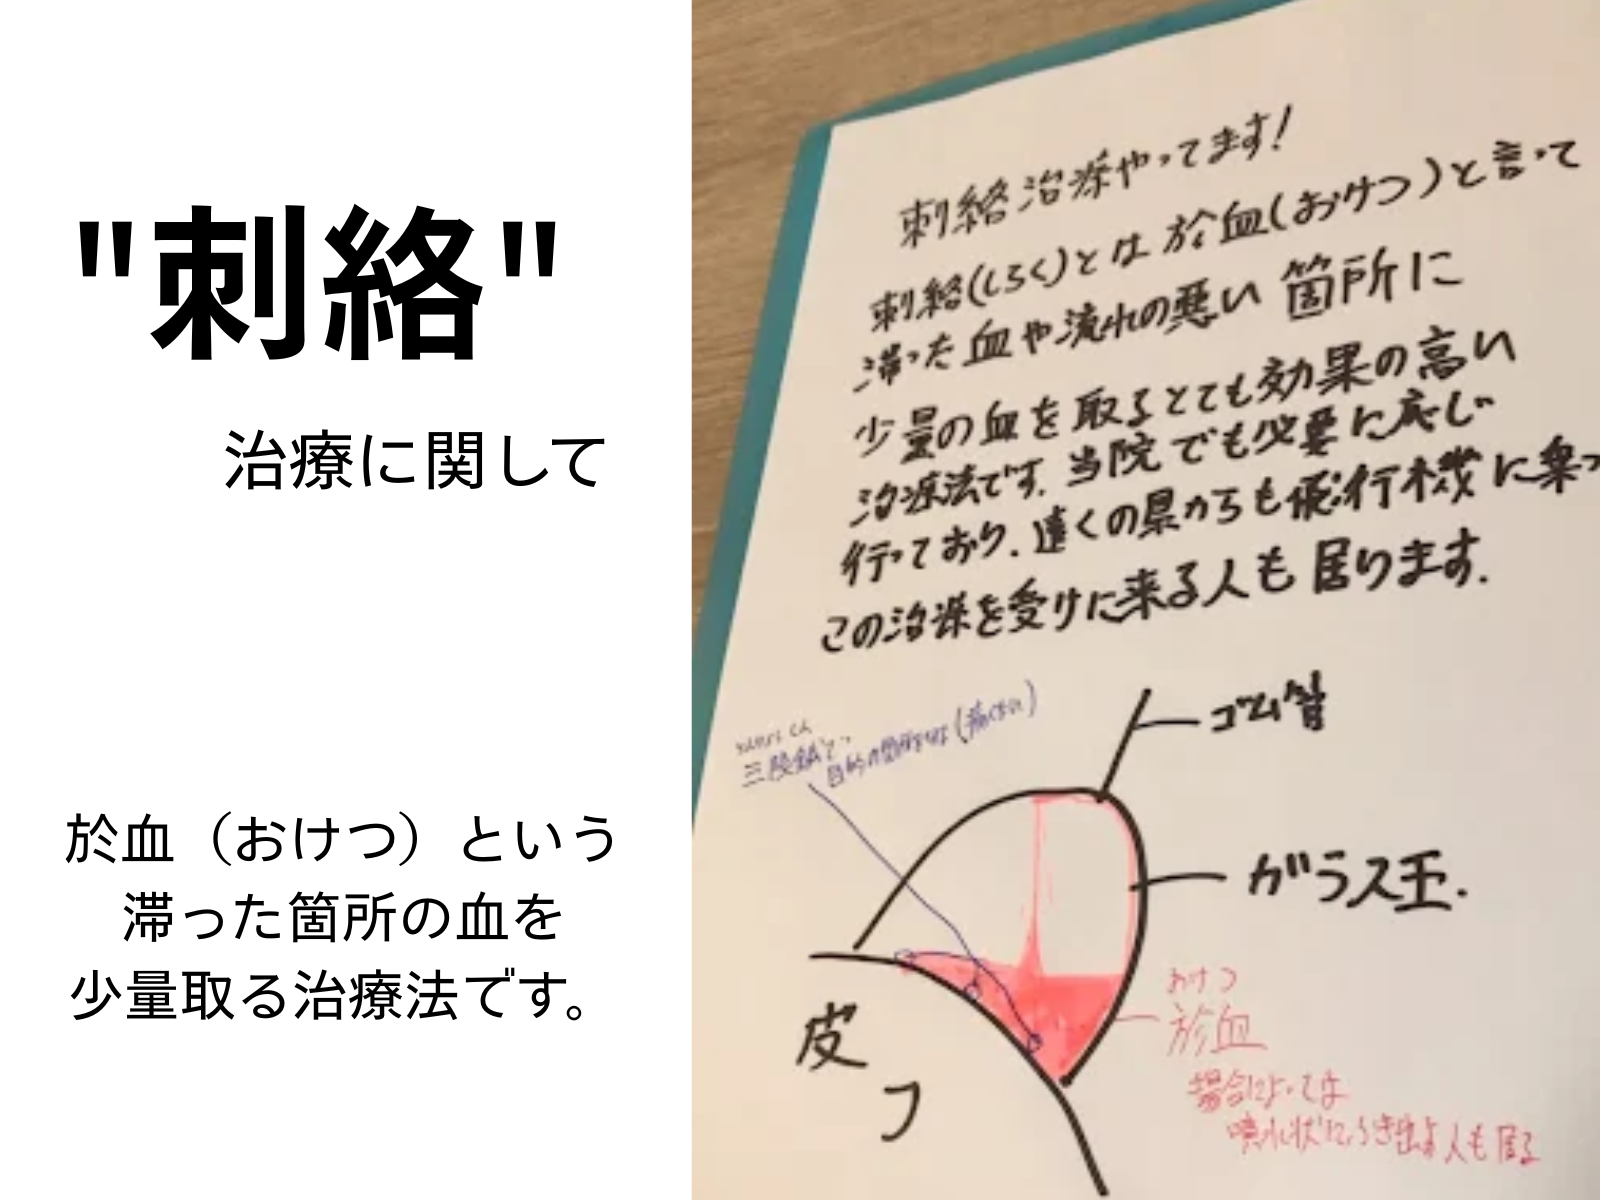 "刺絡"
治療に関して
於血（おけつ）という
滞った箇所の血を
少量取る治療法です。
刺絡治療やってます!
刺絡(しらく)とは於血(おけつ)と言って
滞った血や流れの悪い箇所に
少量の血を取るとても効果の高い
治療法です. 当院でも必要に応じ
行っており. 遠くの県からも飛行機に乗っ
この治療を受けに来る人も居ります.
ゴム管
三稜鍼で
目的の箇所を (痛くない)
ガラス玉.
おけつ
於血
場合によっては
噴水状にふき出す人も居る
皮フ